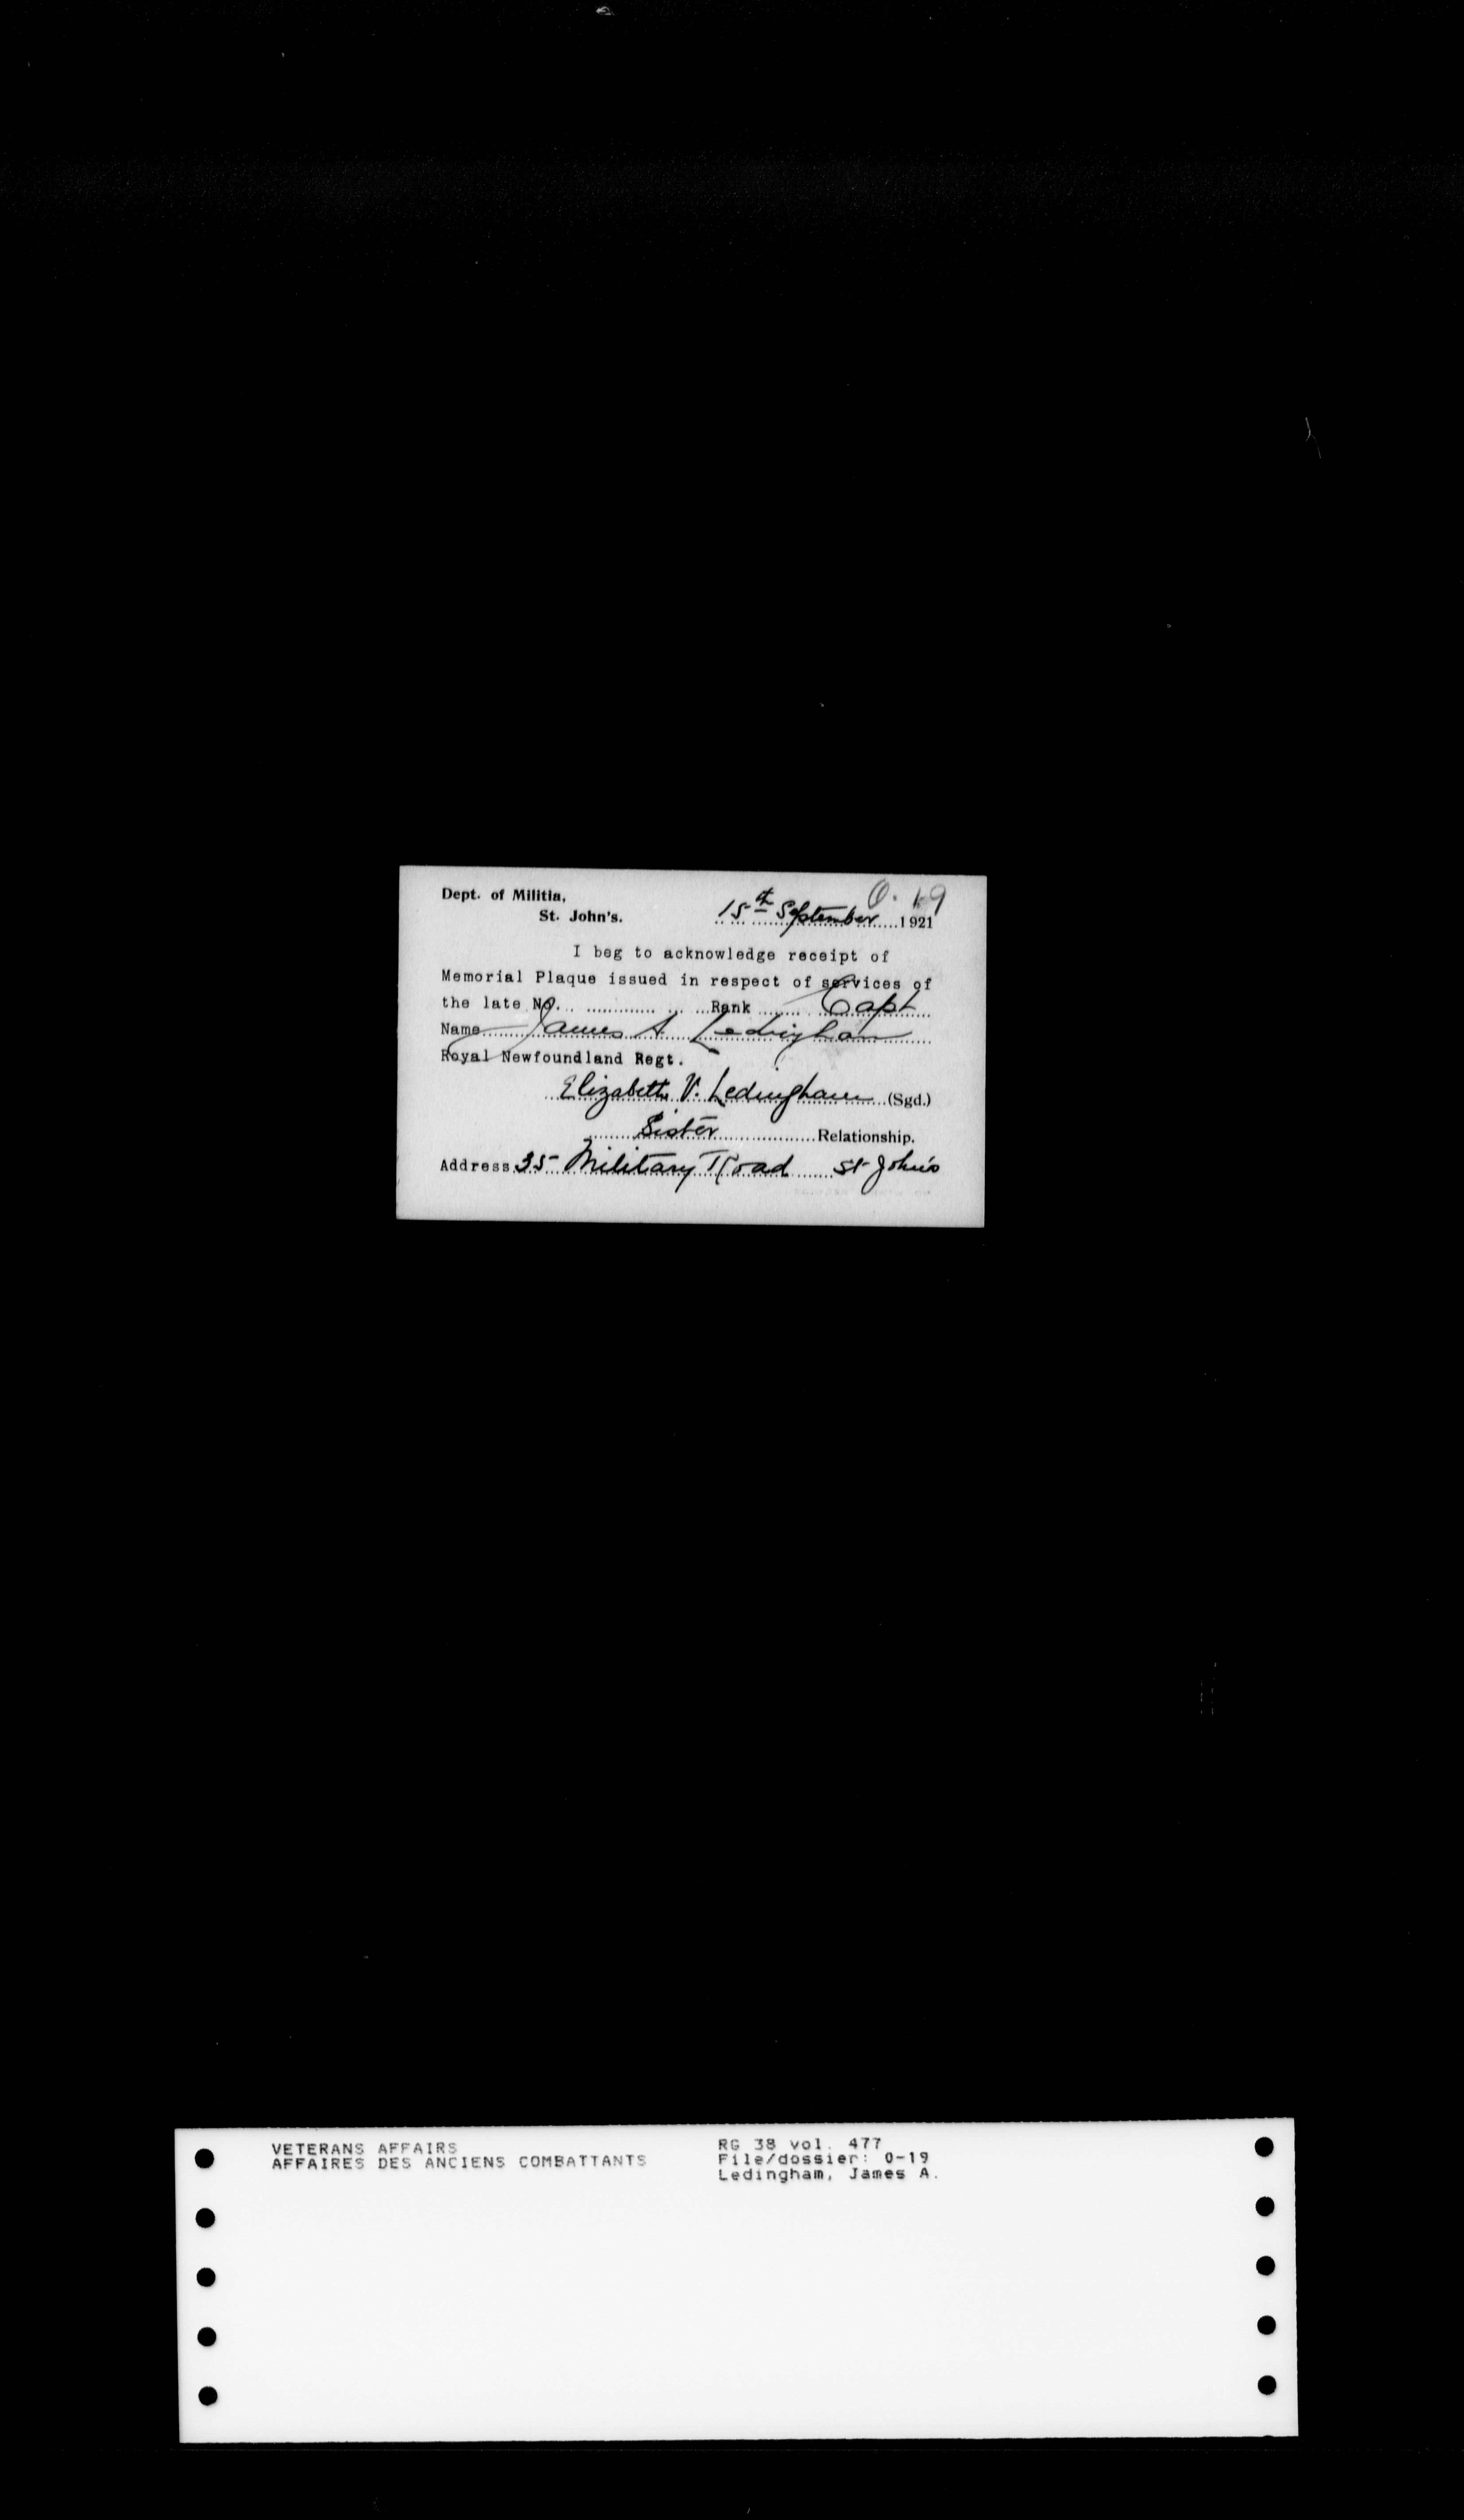 O. 19
Dept. of Militia,
St. John's.
15th September 1921
I beg to acknowledge receipt of
Memorial Plaque issued in respect of services of
the late No. Rank Capt
Name James A. Ledingham
Royal Newfoundland Regt.
Elizabeth V. Ledingham (Sgd.)
Sister Relationship.
Address 35 Military Road St John's
VETERANS AFFAIRS
AFFAIRES DES ANCIENS COMBATTANTS
RG 38 vol. 477
File/dossier: 0-19
Ledingham, James A.